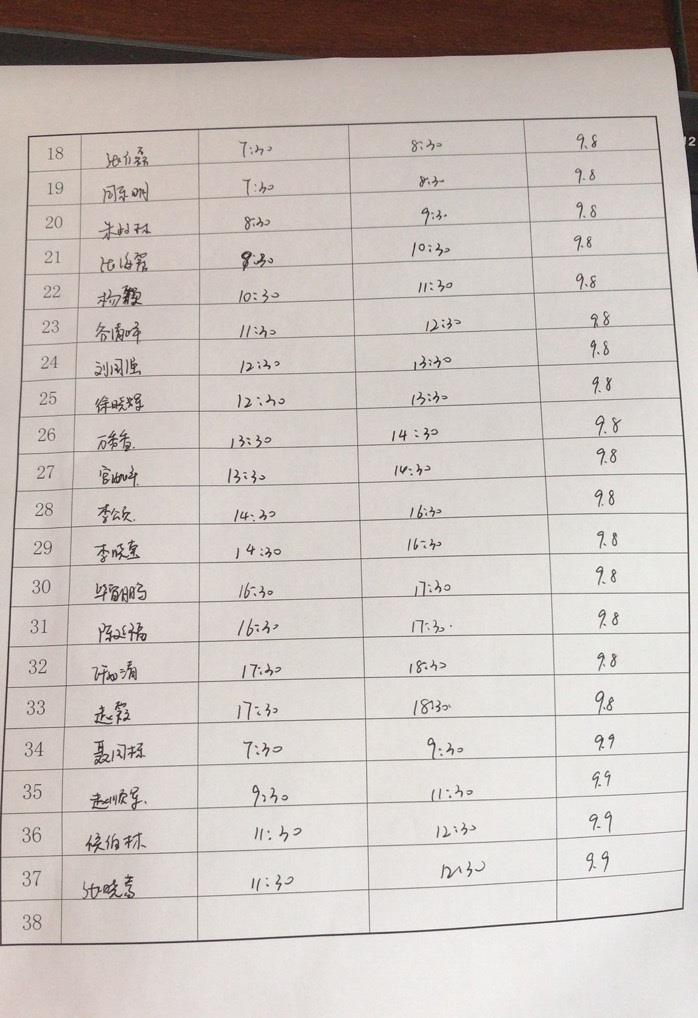 18 7:30 8:30 9.8
19 闫东明 7:30 8:30 9.8
20 朱树林 8:30 9:30 9.8
21 8:30 10:30 9.8
22 杨颖 10:30 11:30 9.8
23 11:30 12:30 9.8
24 刘国强 12:30 13:30 9.8
25 徐晓辉 12:30 13:30 9.8
26 万香香 13:30 14:30 9.8
27 13:30 14:30 9.8
28 李颂 14:30 16:30 9.8
29 李晓东 14:30 16:30 9.8
30 毕留鹏 16:30 17:30 9.8
31 陈延福 16:30 17:30 9.8
32 17:30 18:30 9.8
33 赵霞 17:30 18:30 9.8
34 聂闰栋 7:30 9:30 9.9
35 赵顺军 9:30 11:30 9.9
36 侯伯林 11:30 12:30 9.9
37 张晓嵩 11:30 12:30 9.9
38
12